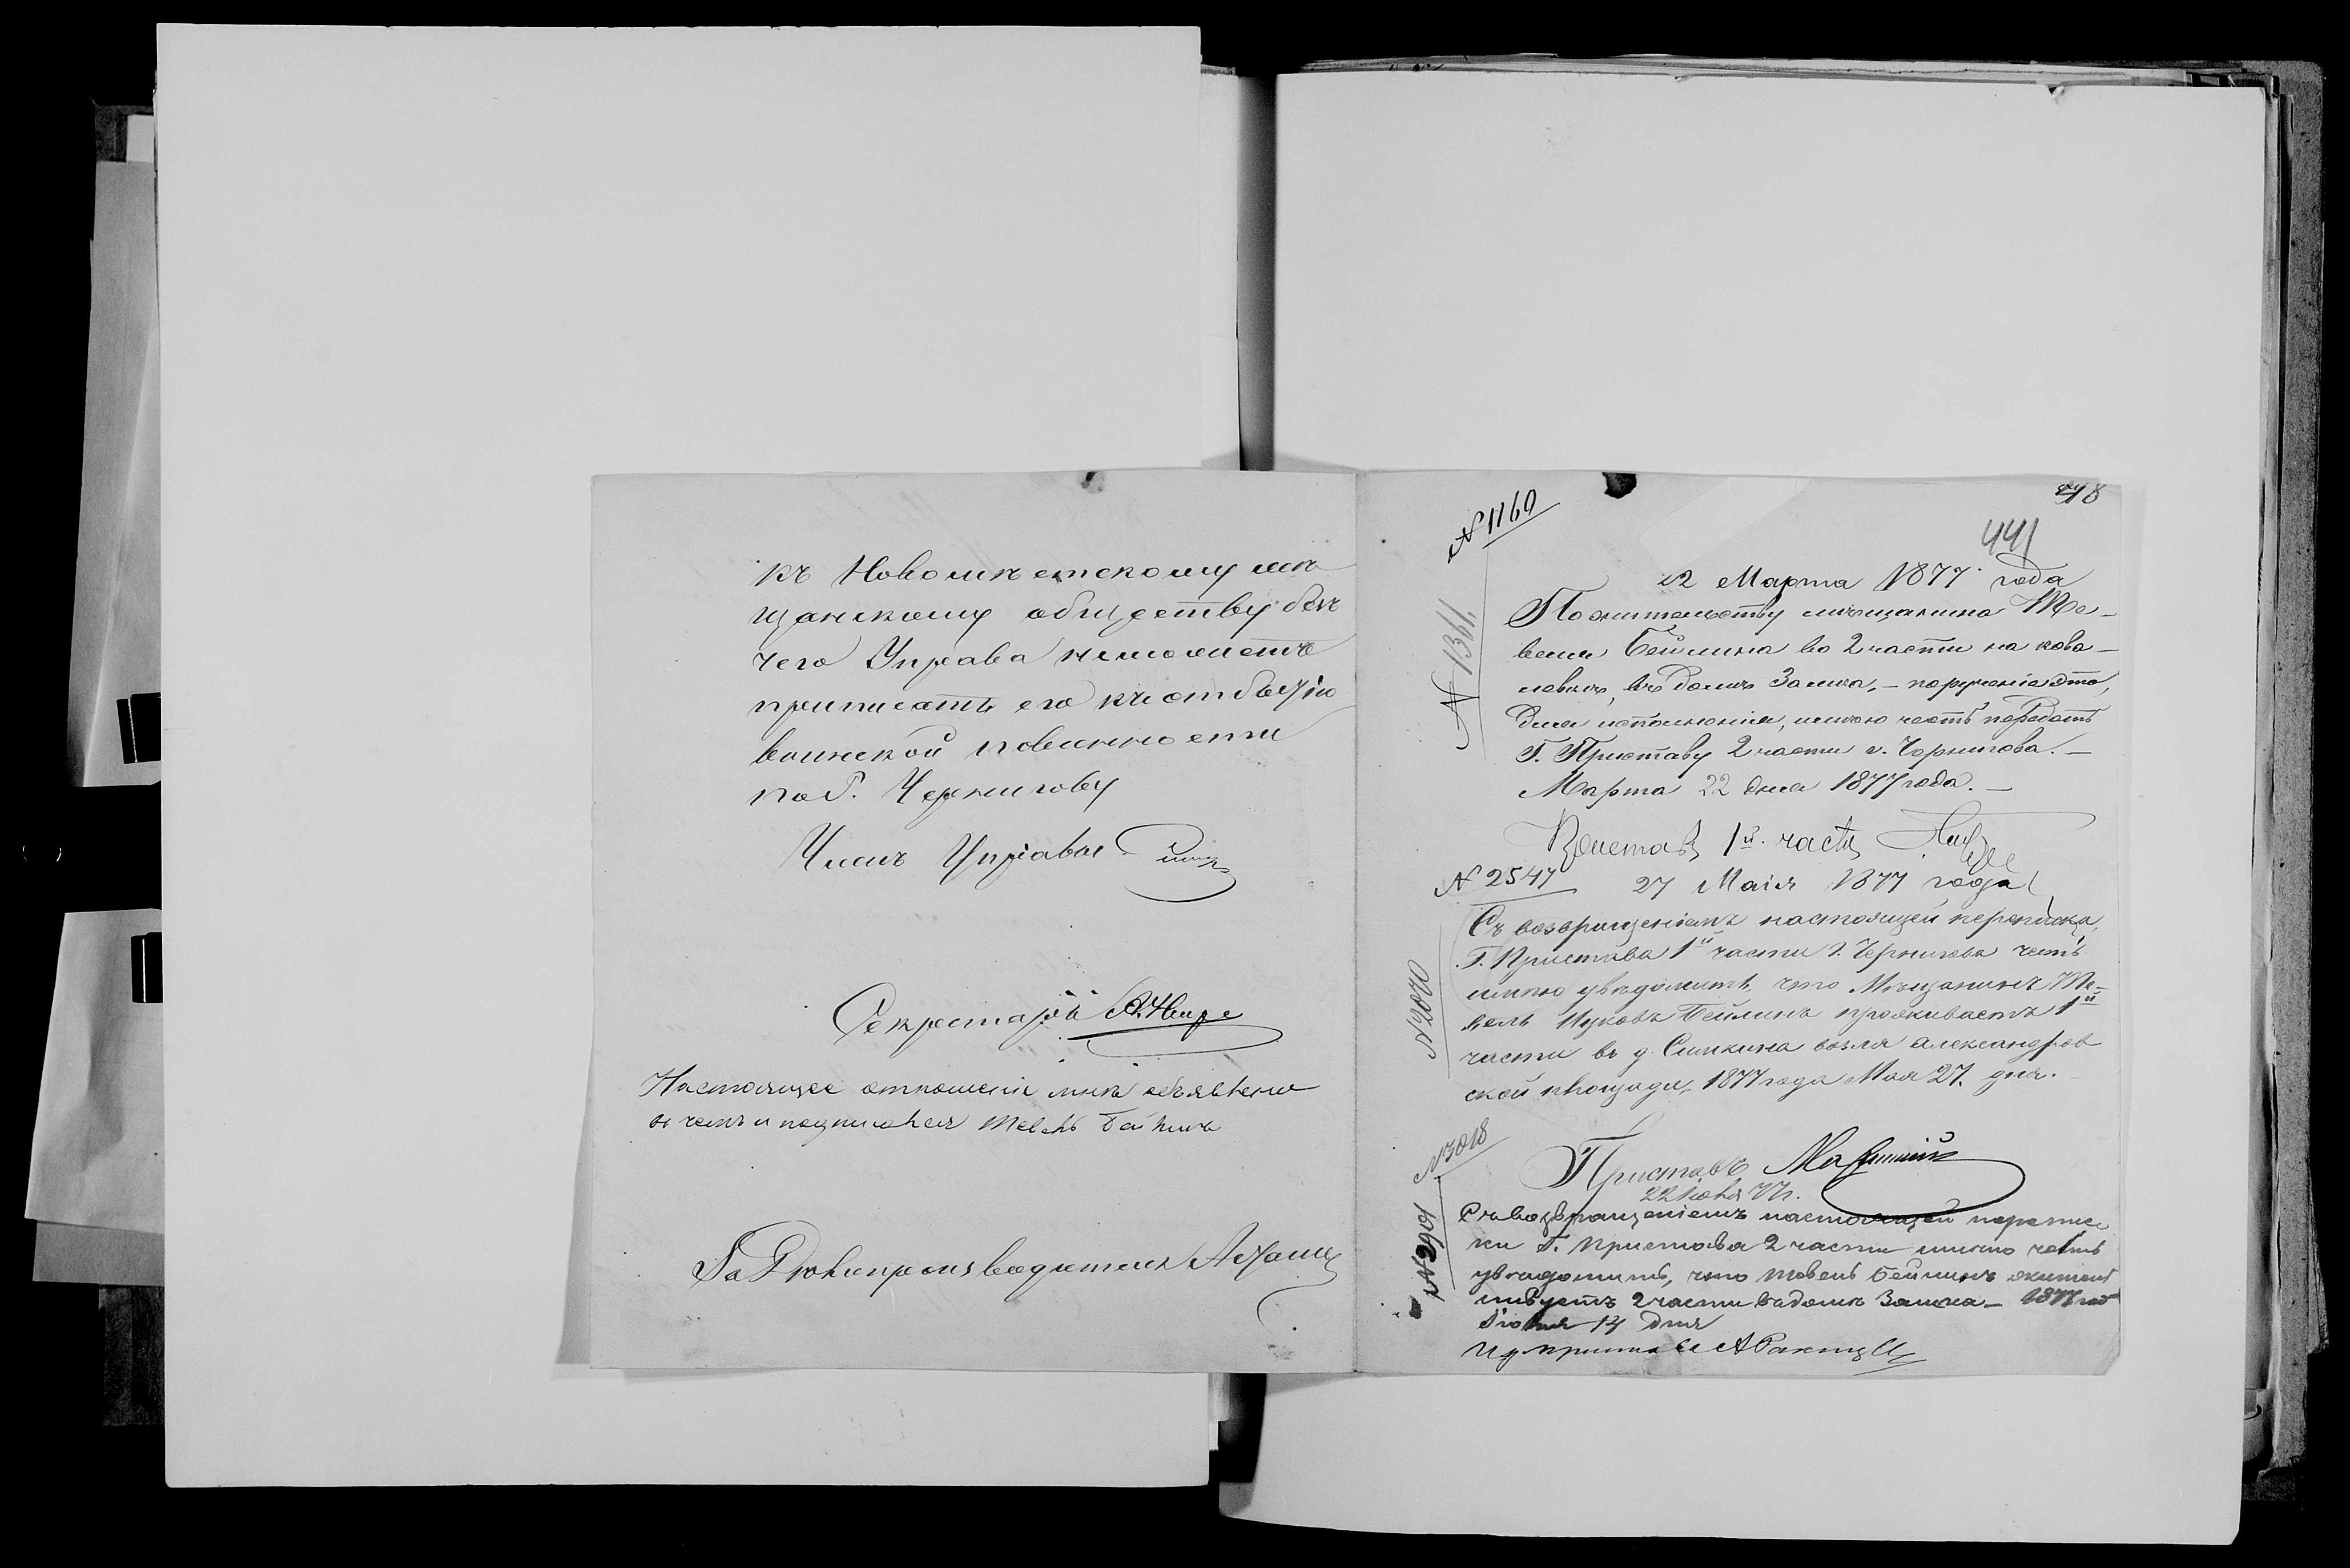 къ Новомѣстскому мѣ
щанскому обществу безъ
чего Управа неможетъ
приписать его къ отбытію
воинской повинности
по Г. Чернигову
Членъ Управы
Секретарь
Настоящее отношеніе мнѣ объявлено
въ чемъ и подписался Тевель Бейлинъ
За Дѣлопроизводителя
418
441
№ 1160
22 Марта 1877 года
По жительству мѣщанина Те-
веля Бейлина во 2 части на кова-
левкѣ, въ домѣ Замка, - порученіе это,
для исполненія, имѣю честь передать
Г. Приставу 2 части г. Чернигова. -
Марта 22 дня 1877 года. -
№ 1341
Приставъ 1й. части
№ 2547
27 Маія 1877 года
Съ возвращеніемъ настоящей переписки,
Г. Пристава 1й части г. Чернигова честь
имѣю увѣдомить, что Мѣщанинъ Те-
вель Ицковъ Бейлинъ проживаетъ 1й
части въ д. Симкина возлѣ александров
ской площади, 1877 года Мая 27. дня.
№ 2070
Приставъ
№ 3018
22 Іюня 77 г.
Съ возвращеніемъ настоящей перепис
ки Г. Пристава 2 части имѣю честь
увѣдомить, что Товель Бейлинъ жительс
твуетъ 2 части въ домѣ Замка - 1877 год
Іюня 14 дня
№ 2901